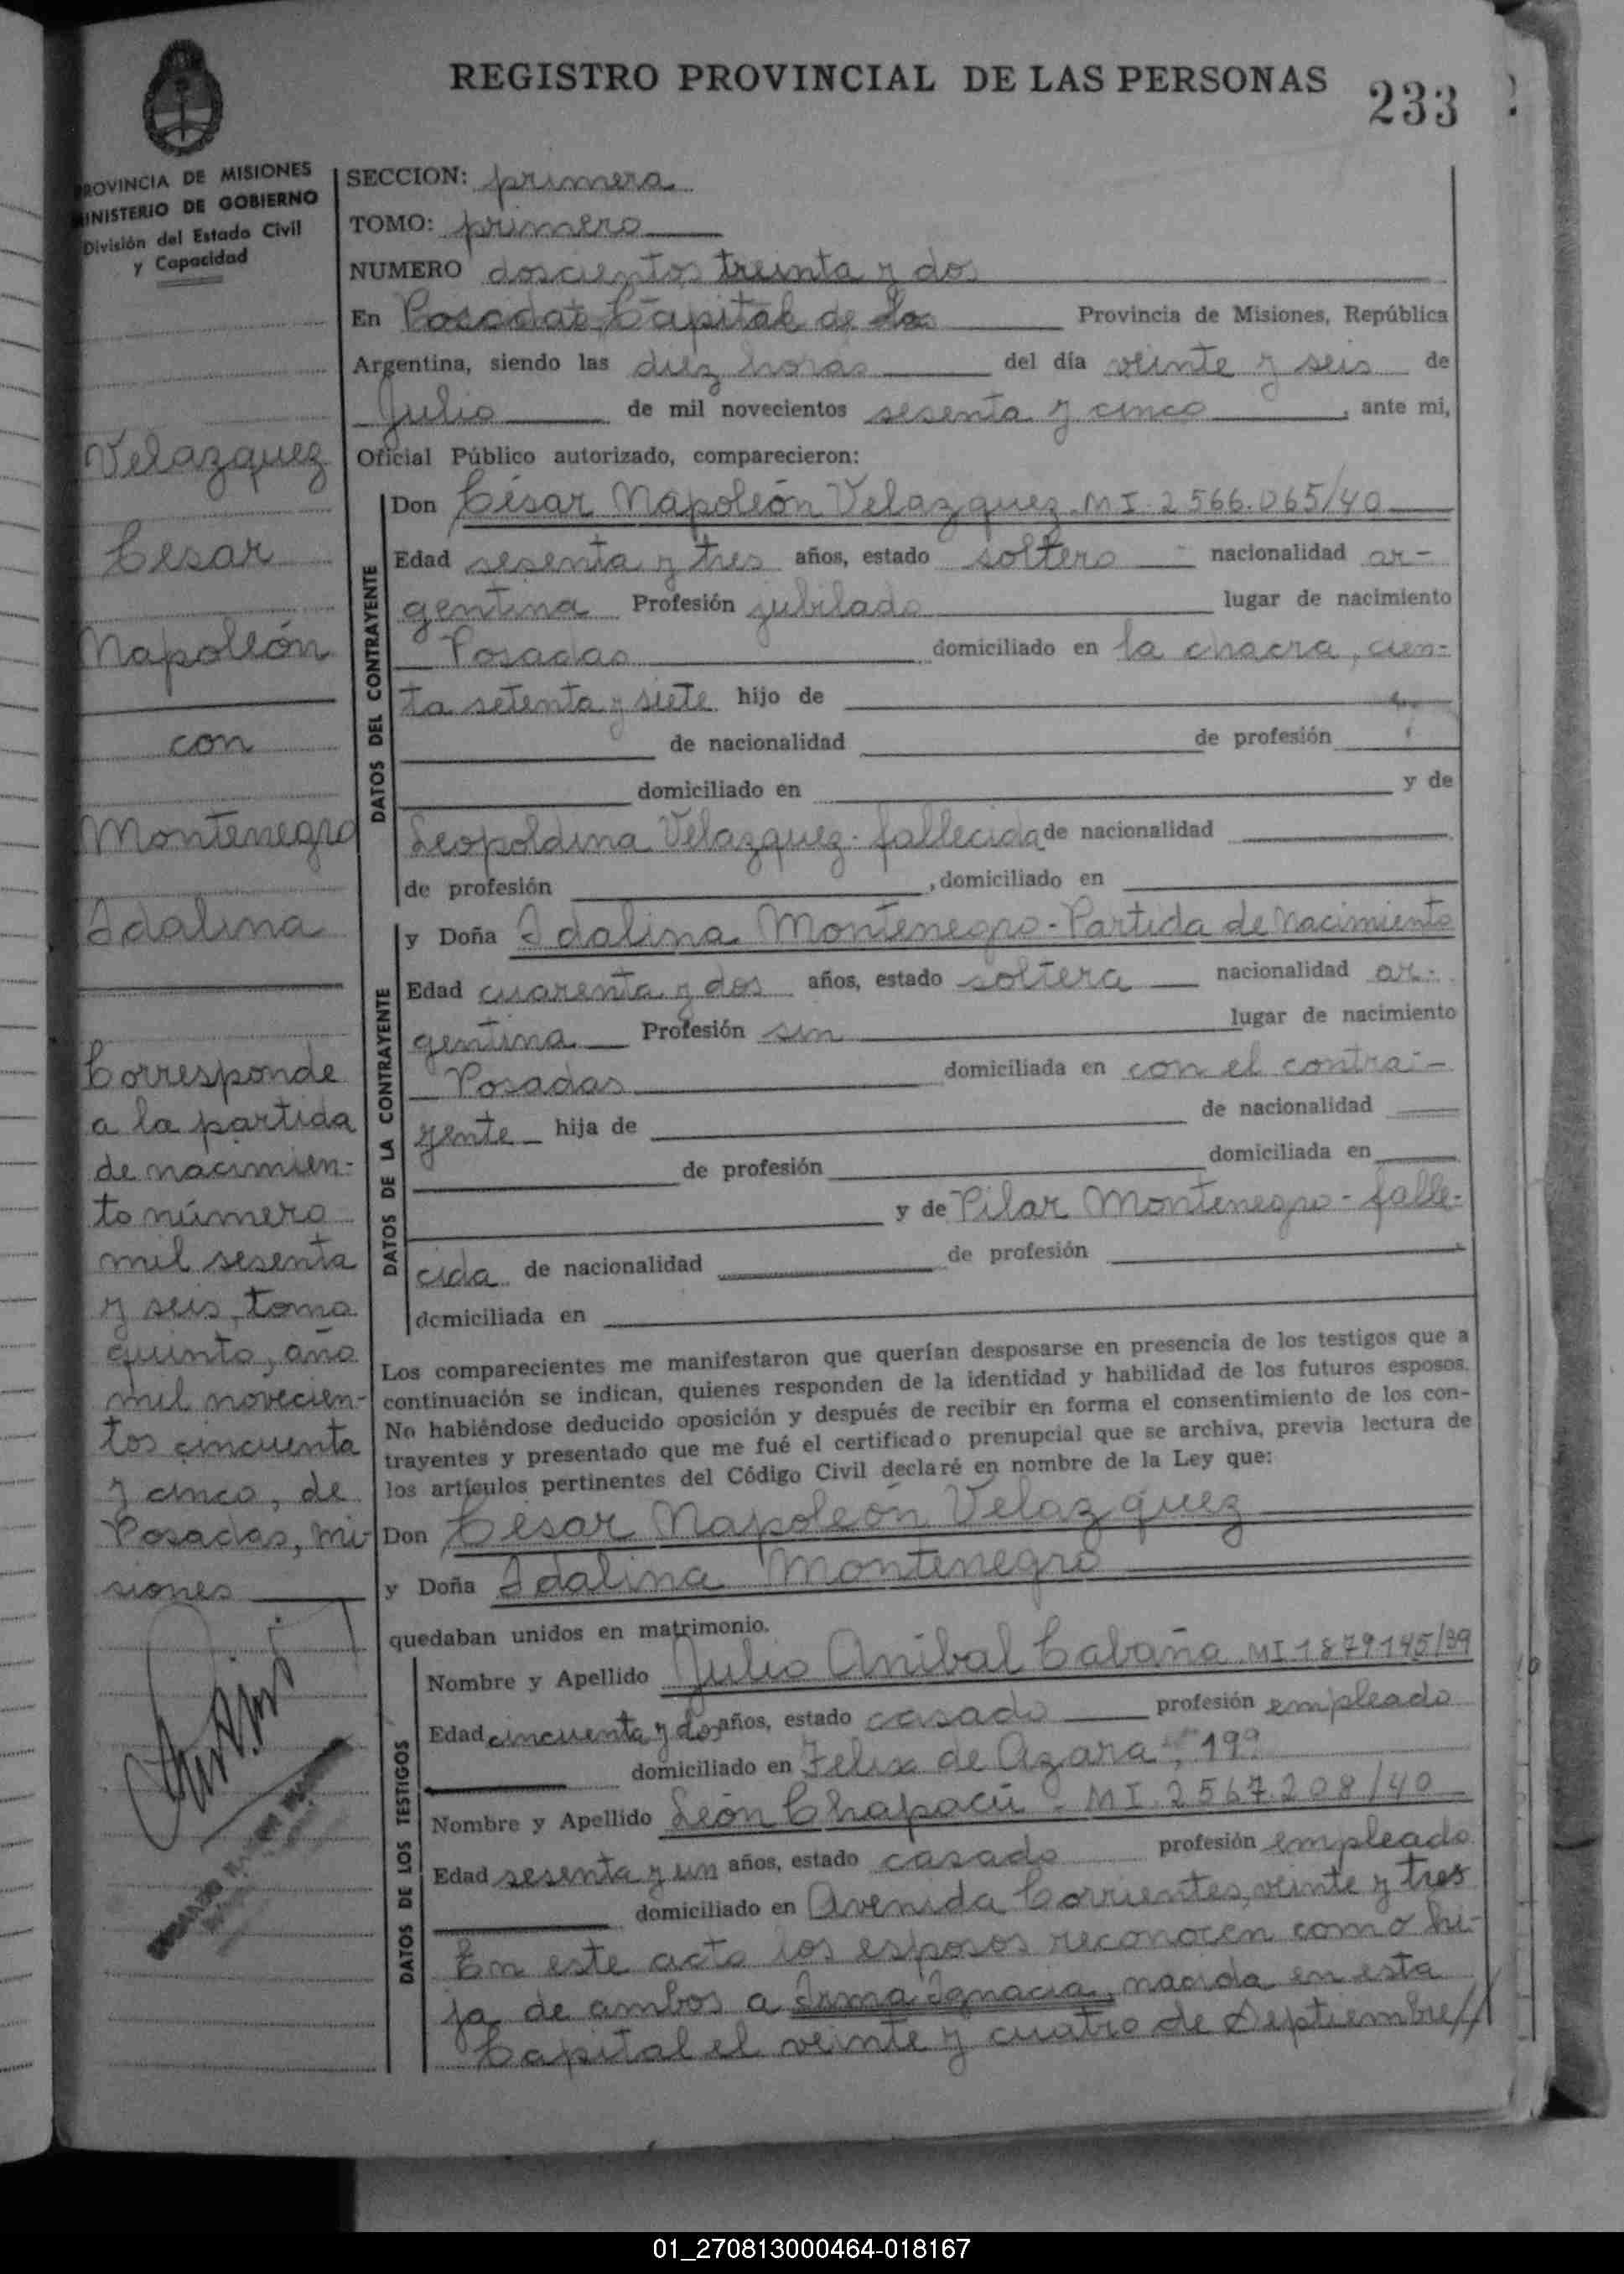 REGISTRO PROVINCIAL DE LAS PERSONAS
233
PROVINCIA DE MISIONES
MINISTERIO DE GOBIERNO
División del Estado Civil
y Capacidad
SECCION: primera
TOMO: primero
NUMERO doscientos treinta y dos
En Posadas Capital de la Provincia de Misiones, República
Argentina, siendo las diez horas del día veinte y seis de
Julio de mil novecientos sesenta y cinco, ante mi,
Oficial Público autorizado, comparecieron:
DATOS DEL CONTRAYENTE
Don César Napoleón Velazquez MI 2566.065/40
Edad sesenta y tres años, estado soltero - nacionalidad ar-
gentina Profesión jubilado lugar de nacimiento
Posadas domiciliado en la chacra, cien-
to setenta y siete hijo de
de nacionalidad de profesión
domiciliado en y de
Leopoldina Velazquez - fallecida de nacionalidad
de profesión , domiciliado en
DATOS DE LA CONTRAYENTE
y Doña Idalina Montenegro - Partida de Nacimiento
Edad cuarenta y dos años, estado soltera nacionalidad ar-
gentina Profesión sin lugar de nacimiento
Posadas domiciliada en con el contra-
yente hija de de nacionalidad
de profesión domiciliada en
y de Pilar Montenegro - falle-
cida de nacionalidad de profesión
domiciliada en
Los comparecientes me manifestaron que querían desposarse en presencia de los testigos que a
continuación se indican, quienes responden de la identidad y habilidad de los futuros esposos.
No habiéndose deducido oposición y después de recibir en forma el consentimiento de los con-
trayentes y presentado que me fué el certificado prenupcial que se archiva, previa lectura de
los artículos pertinentes del Código Civil declaré en nombre de la Ley que:
Don César Napoleón Velazquez
y Doña Idalina Montenegro
quedaban unidos en matrimonio.
DATOS DE LOS TESTIGOS
Nombre y Apellido Julio Anibal Cabaña MI 1879145/39
Edad cincuenta y dos años, estado casado profesión empleado
domiciliado en Felix de Azara, 199
Nombre y Apellido León Chapacú - MI 2567.208/40
Edad sesenta y un años, estado casado profesión empleado
domiciliado en Avenida Corrientes, veinte y tres
En este acto los esposos reconocen como hi-
ja de ambos a Irma Ignacia, nacida en esta
Capital el veinte y cuatro de Septiembre//
Velazquez
Cesar
Napoleón
con
Montenegro
Idalina
Corresponde
a la partida
de nacimien-
to número
mil sesenta
y seis, tomo
quinto, año
mil novecien-
tos cincuenta
y cinco, de
Posadas, Mi-
siones
01_270813000464-018167